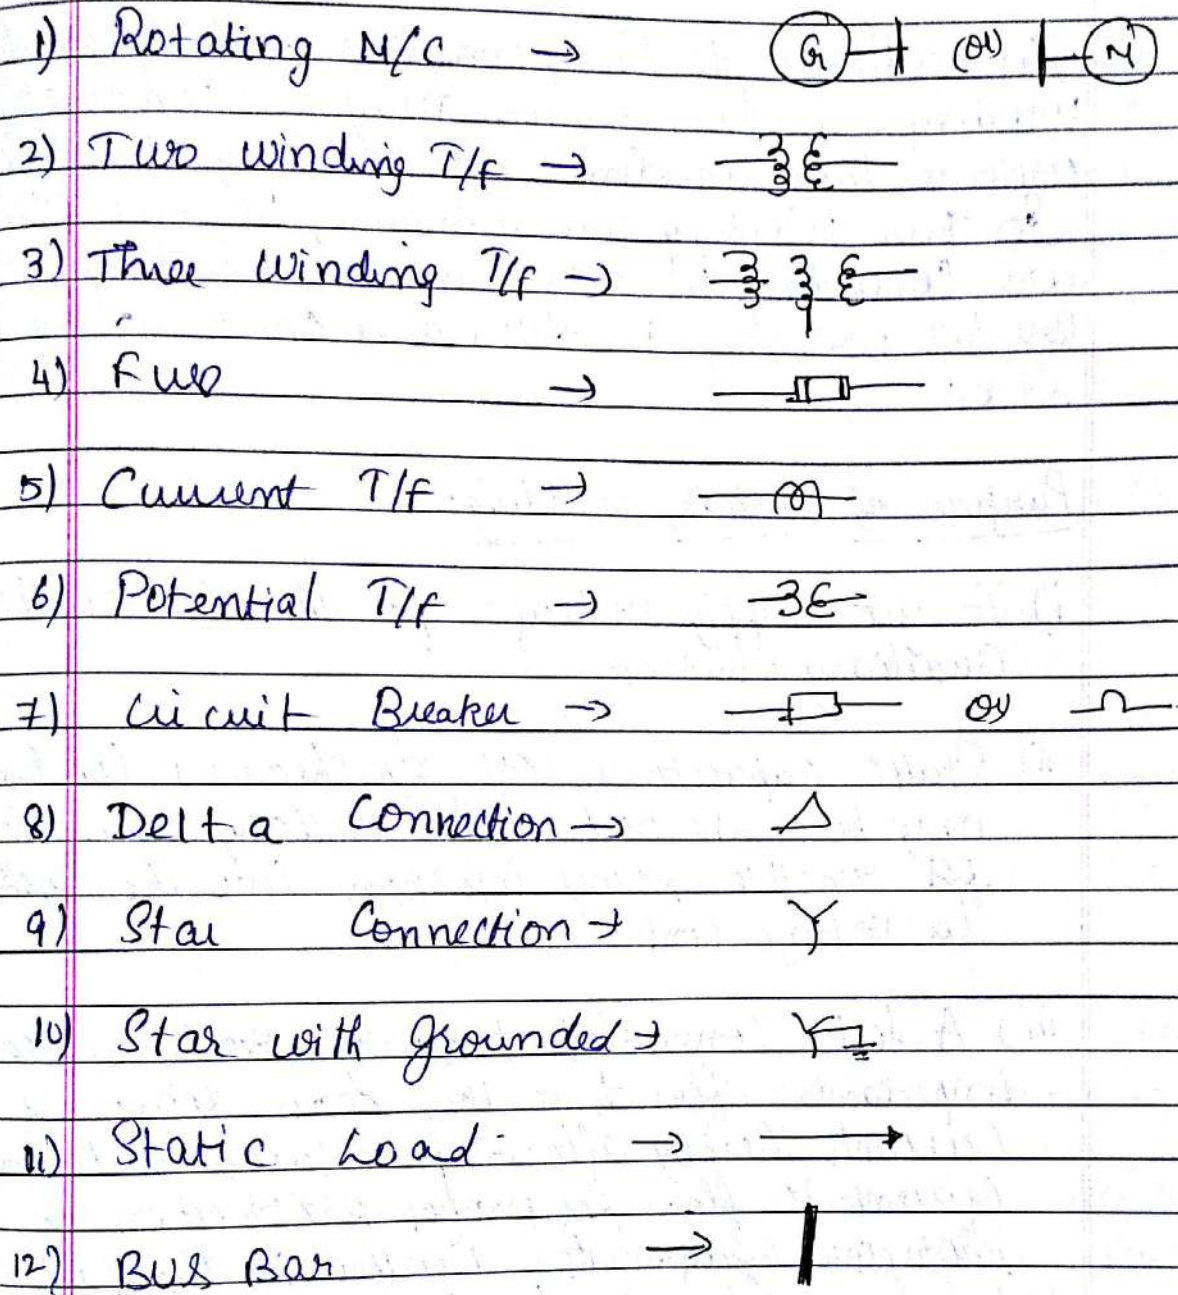 1) Rotating M/C → G (or) M
2) Two winding T/f →
3) Three Winding T/f →
4) Fuse →
5) Current T/f →
6) Potential T/f →
7) Circuit Breaker → or
8) Delta Connection →
9) Star Connection →
10) Star with grounded →
11) Static Load →
12) Bus Bar →